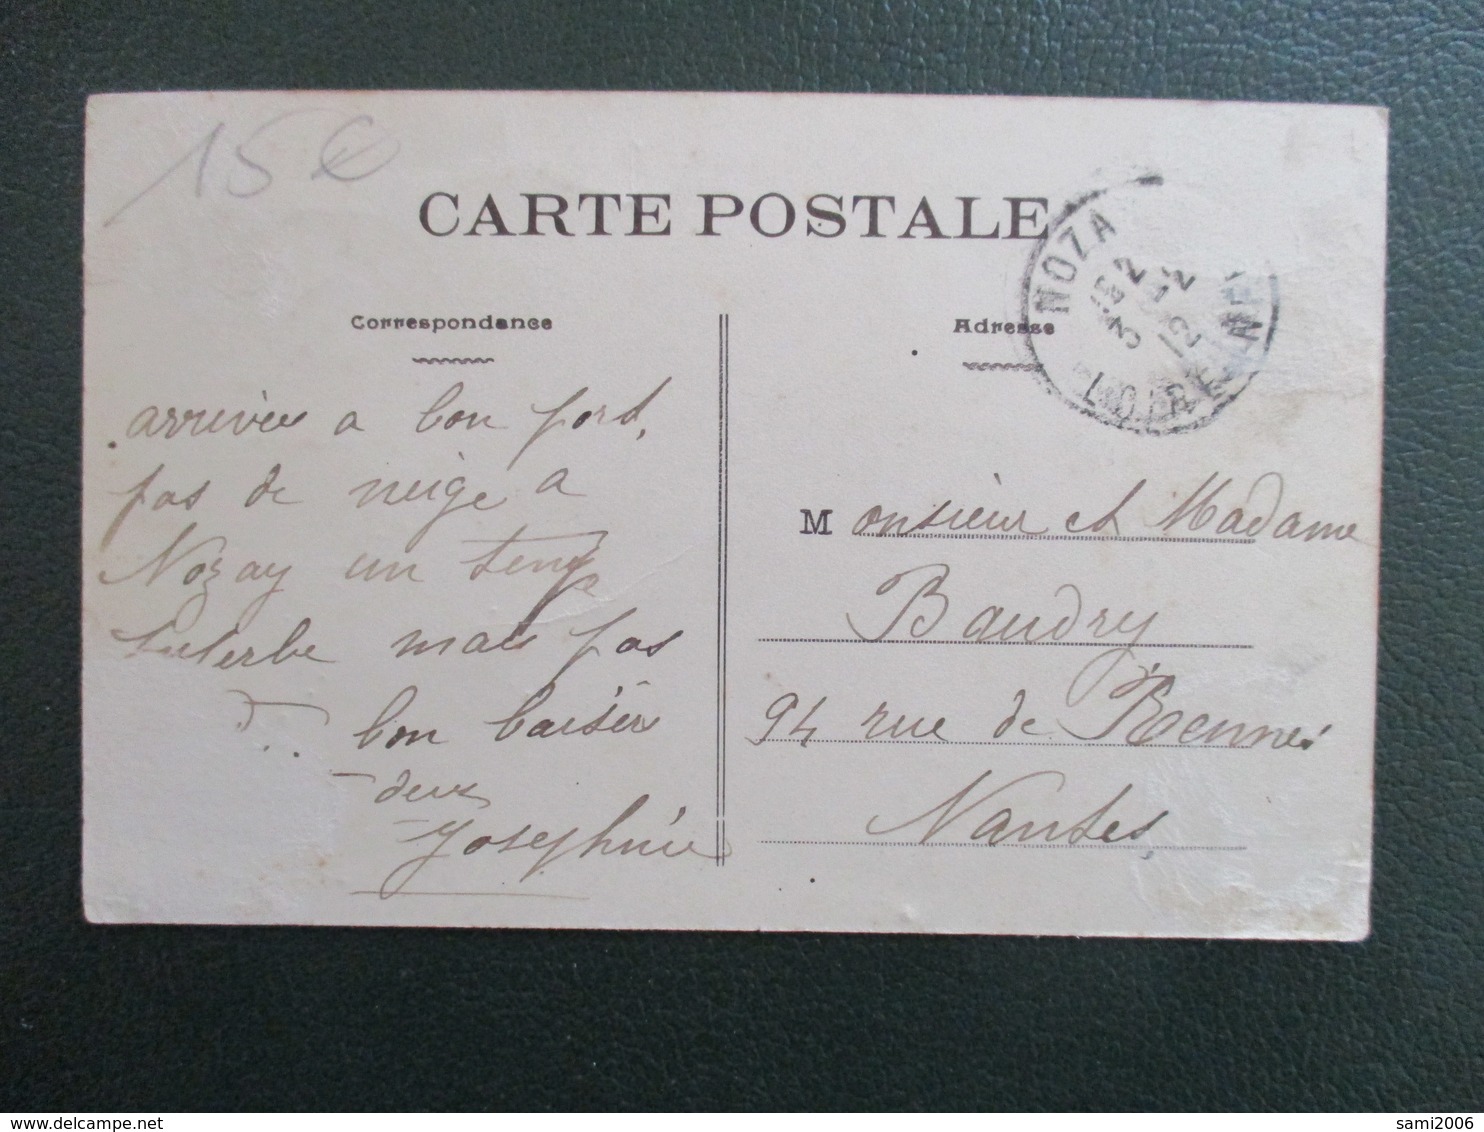 15€
CARTE POSTALE
Correspondance
Adresse
NOZA
LOIRE INF
arrivée a bon port,
pas de neige a
Nozay un temp
mais pas
bon baiser
Josephine
Monsieur et Madame
Baudry
94 rue de Rennes
Nantes
sami2006